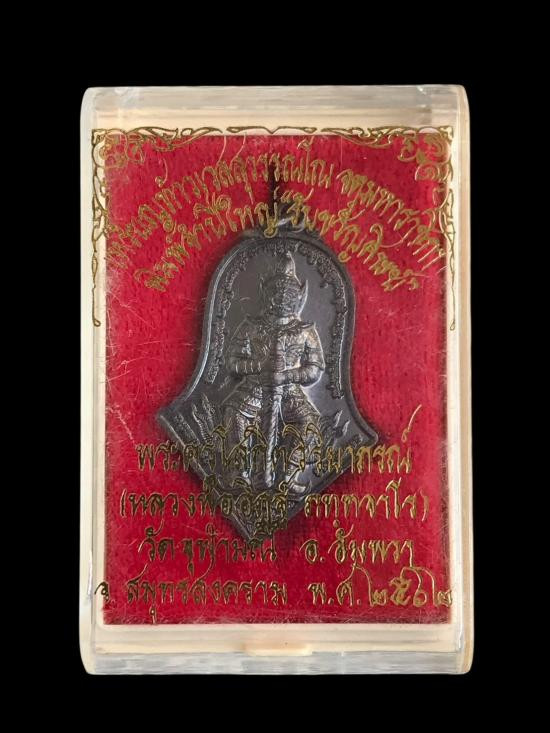 เหรียญท้าวเวสสุวรรณโณ จตุมหาราชิกา
พิมพ์จำปีใหญ่ "รับขวัญศิษย์"
พระครูโสภิตวิริยาภรณ์
(หลวงพ่ออิฏฐ์ ภทฺทจาโร)
วัดจุฬามณี อ.อัมพวา
จ.สมุทรสงคราม พ.ศ.๒๕๖๒